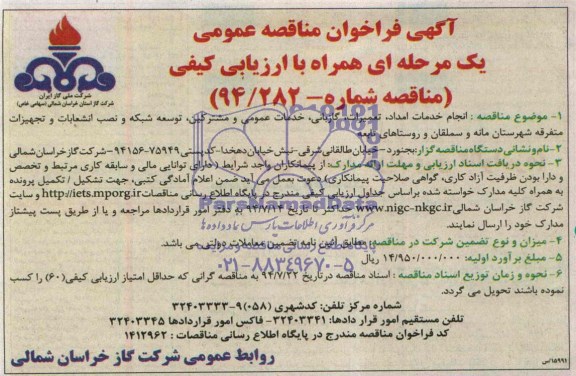 آگهی فراخوان مناقصه عمومی
یک مرحله ای همراه با ارزیابی کیفی
(مناقصه شماره- ۹۴/۲۸۲)
شرکت ملی گاز ایران
شرکت گاز استان خراسان شمالی (سهامی خاص)
۱- موضوع مناقصه : انجام خدمات امداد، تعمیرات، گازبانی، خدمات عمومی و مشترکین، توسعه شبکه و نصب انشعابات و تجهیزات
متفرقه شهرستان مانه و سملقان و روستاهای تابعه
۲- نام و نشانی دستگاه مناقصه گزار: بجنورد- خیابان طالقانی شرقی- نبش خیابان دهخدا- کدپستی ۷۵۹۴۹-۹۴۱۵۶- شرکت گاز خراسان شمالی
۳- نحوه دریافت اسناد ارزیابی و مهلت ارائه مدارک: از پیمانکاران واجد شرایط (دارای توانایی مالی و سابقه کاری مرتبط و تخصص
و دارا بودن ظرفیت آزاد کاری، گواهی صلاحیت پیمانکاری) دعوت بعمل می آید ضمن اعلام آمادگی کتبی، جهت تشکیل / تکمیل پرونده
به همراه کلیه مدارک خواسته شده براساس جداول ارزیابی کیفی مندرج در پایگاه اطلاع رسانی مناقصات http://iets.mporg.ir و سایت
شرکت گاز خراسان شمالی www.nigc-nkgc.ir حداکثر تا تاریخ به دفتر امور قراردادها مراجعه و یا از طریق پست پیشتاز
مدارک خود را ارسال نمایند.
۴- میزان و نوع تضمین شرکت در مناقصه: مطابق آیین نامه تضمین معاملات دولتی می باشد.
۵- مبلغ برآورد اولیه: ۱۴/۹۵۰/۰۰۰/۰۰۰ ریال
۶- نحوه و زمان توزیع اسناد مناقصه : اسناد مناقصه در تاریخ ۹۴/۷/۲۲ به مناقصه گرانی که حداقل امتیاز ارزیابی کیفی (۶۰) را کسب
نموده باشند تحویل می گردد.
شماره مرکز تلفن: کدشهری (۰۵۸) ۹-۳۲۴۰۳۳۳۳
تلفن مستقیم امور قرار دادها: ۳۲۴۰۳۳۴۱- فاکس امور قراردادها ۳۲۴۰۳۳۴۵
کد فراخوان مناقصه مندرج در پایگاه اطلاع رسانی مناقصات : ۱۴۱۲۹۶۲
روابط عمومی شرکت گاز خراسان شمالی
۱۵۹۹۱/س
ParsNamadData
مرکز فرآوری اطلاعات پارس نماد داده ها
پایگاه اطلاع رسانی مناقصه و مزایده
۰۲۱-۸۸۳۴۹۶۷۰-۵